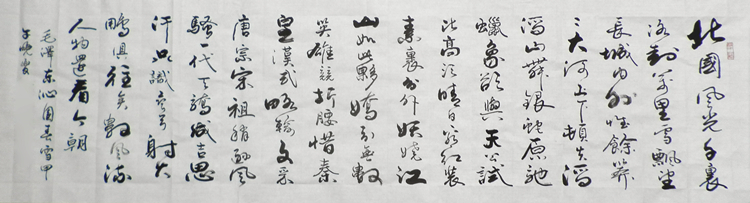 北國風光千裏
冰封萬里雪飄望
長城内外惟餘莽
〻大河上下頓失滔
滔山舞銀蛇原馳
蠟象欲與天公試
比高須晴日看紅裝
素裹分外妖嬈江
山如此多嬌引無數
英雄競折腰惜秦
皇漢武略輸文采
唐宗宋祖稍遜風
騷一代天驕成吉思
汗只識彎弓射大
鵰俱往矣數風流
人物還看今朝
毛澤東沁園春雪甲
午